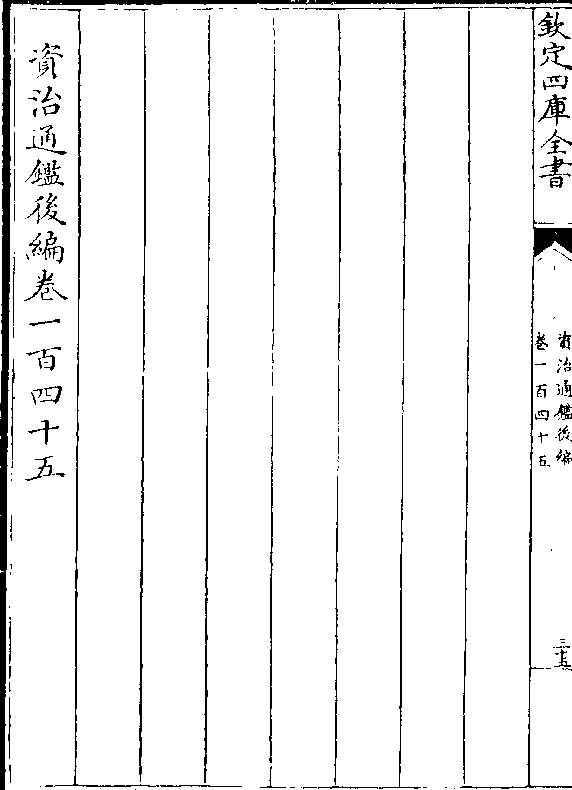 欽定四庫全書
資治通鑑後編
卷一百四十五
三十五
資治通鑑後編卷一百四十五